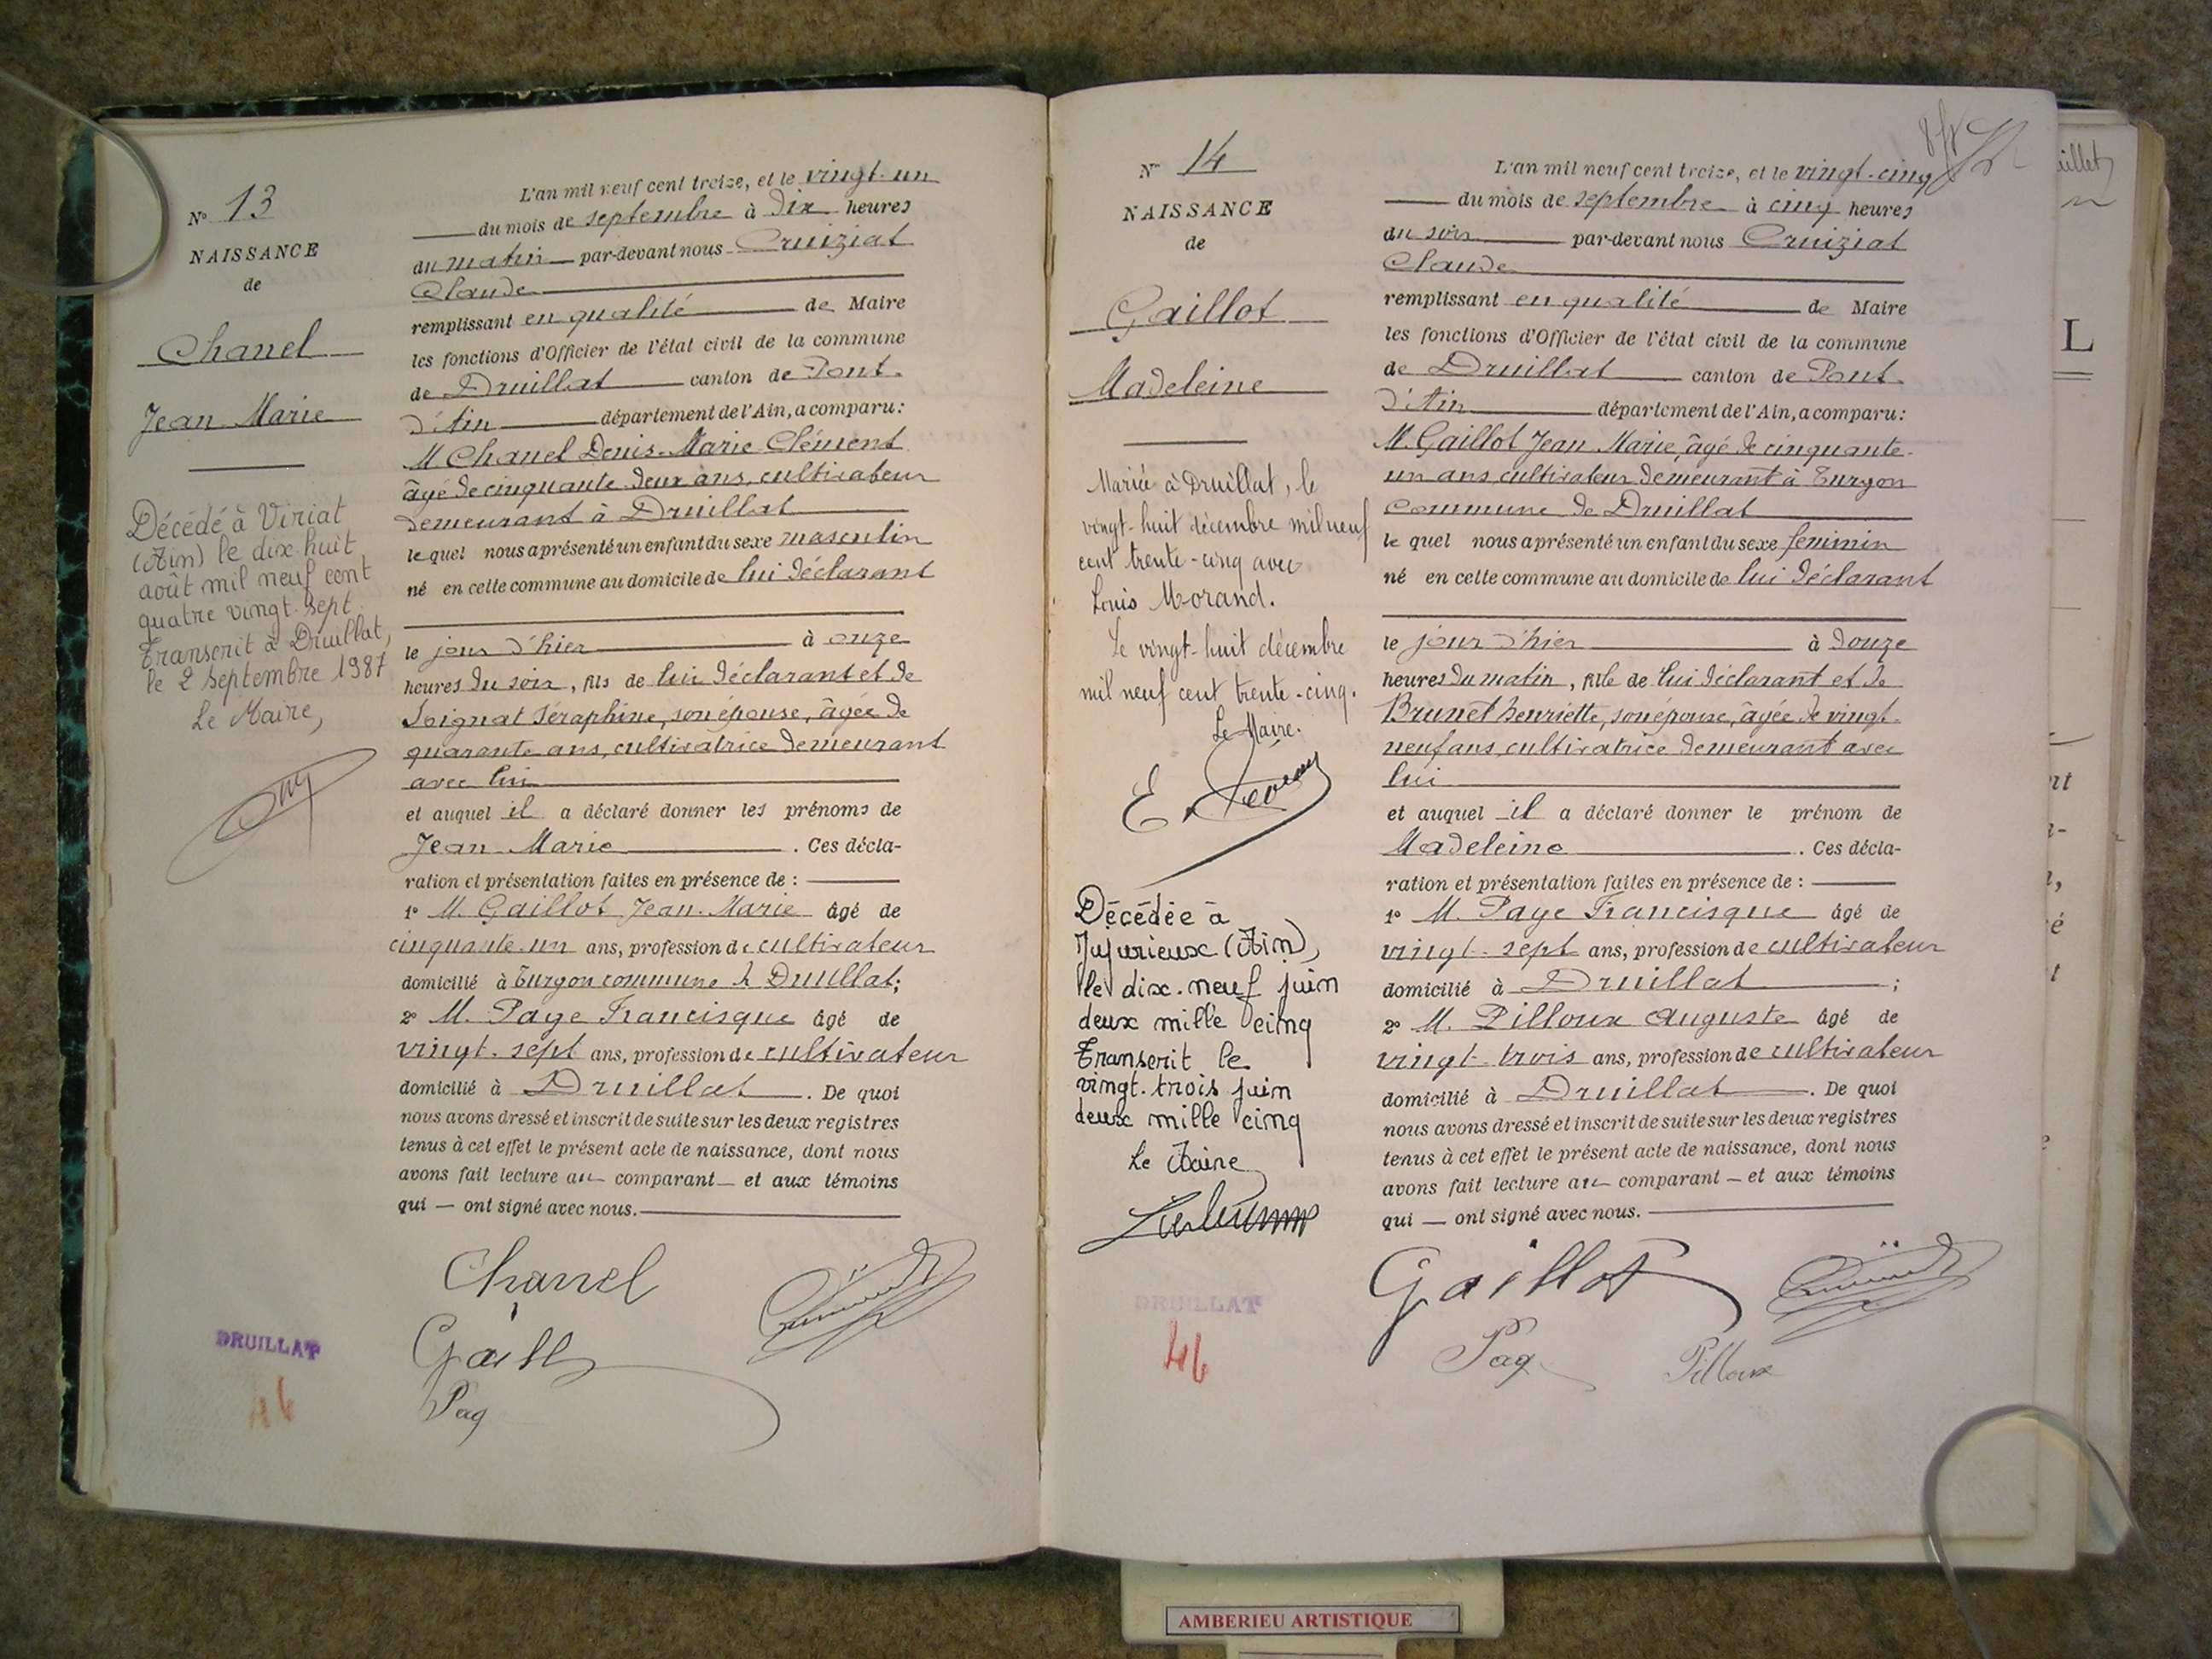 N° 13
NAISSANCE
de
Chanel
Jean Marie
Décédé à Viriat
(Ain) le dix huit
août mil neuf cent
quatre vingt-sept
Transcrit à Druillat,
le 2 Septembre 1987
Le Maire,
DRUILLAT
L'an mil neuf cent treize, et le vingt-un
du mois de septembre à dix heures
du matin par-devant nous Cruiziat
Claude
remplissant en qualité de Maire
les fonctions d'Officier de l'état civil de la commune
de Druillat canton de Pont-
d'Ain département de l'Ain, a comparu:
M Chanel Denis-Marie Clément
âgé de cinquante deux ans, cultivateur
demeurant à Druillat
le quel nous a présenté un enfant du sexe masculin
né en cette commune au domicile de lui déclarant
le jour d'hier à onze
heures du soir, fils de lui déclarant et de
Soignat Séraphine, son épouse, âgée de
quarante ans, cultivatrice demeurant
avec lui
et auquel il a déclaré donner les prénoms de
Jean-Marie. Ces décla-
ration et présentation faites en présence de :
1° M. Gaillot Jean-Marie âgé de
cinquante-un ans, profession de cultivateur
domicilié à Turgon commune de Druillat;
2° M. Paye Francisque âgé de
vingt-sept ans, profession de cultivateur
domicilié à Druillat. De quoi
nous avons dressé et inscrit de suite sur les deux registres
tenus à cet effet le présent acte de naissance, dont nous
avons fait lecture au comparant et aux témoins
qui ont signé avec nous.
Chanel
Gaillot
Pay
N° 14
NAISSANCE
de
Gaillot
Madeleine
Mariée à Druillat, le
vingt-huit décembre mil neuf
cent trente-cinq avec
Louis Morand.
Le vingt-huit décembre
mil neuf cent trente-cinq.
Le Maire.
Décédée à
Jujurieux (Ain),
le dix-neuf juin
deux mille cinq
Transcrit le
vingt-trois juin
deux mille cinq
Le Maire
DRUILLAT
46
L'an mil neuf cent treize, et le vingt-cinq
du mois de septembre à cinq heures
du soir par-devant nous Cruiziat
Claude
remplissant en qualité de Maire
les fonctions d'Officier de l'état civil de la commune
de Druillat canton de Pont-
d'Ain département de l'Ain, a comparu:
M. Gaillot Jean Marie, âgé de cinquante-
un ans, cultivateur demeurant à Turgon
commune de Druillat
le quel nous a présenté un enfant du sexe feminin
né en cette commune au domicile de lui déclarant
le jour d'hier à douze
heures du matin, fille de lui déclarant et de
Brunet henriette, son épouse, âgée de vingt-
neuf ans, cultivatrice demeurant avec
lui
et auquel il a déclaré donner le prénom de
Madeleine. Ces décla-
ration et présentation faites en présence de :
1° M. Paye Francisque âgé de
vingt-sept ans, profession de cultivateur
domicilié à Druillat ;
2° M. Pilloux Auguste âgé de
vingt-trois ans, profession de cultivateur
domicilié à Druillat. De quoi
nous avons dressé et inscrit de suite sur les deux registres
tenus à cet effet le présent acte de naissance, dont nous
avons fait lecture au comparant et aux témoins
qui ont signé avec nous.
Gaillot
Pay Pilloux
L
AMBERIEU ARTISTIQUE